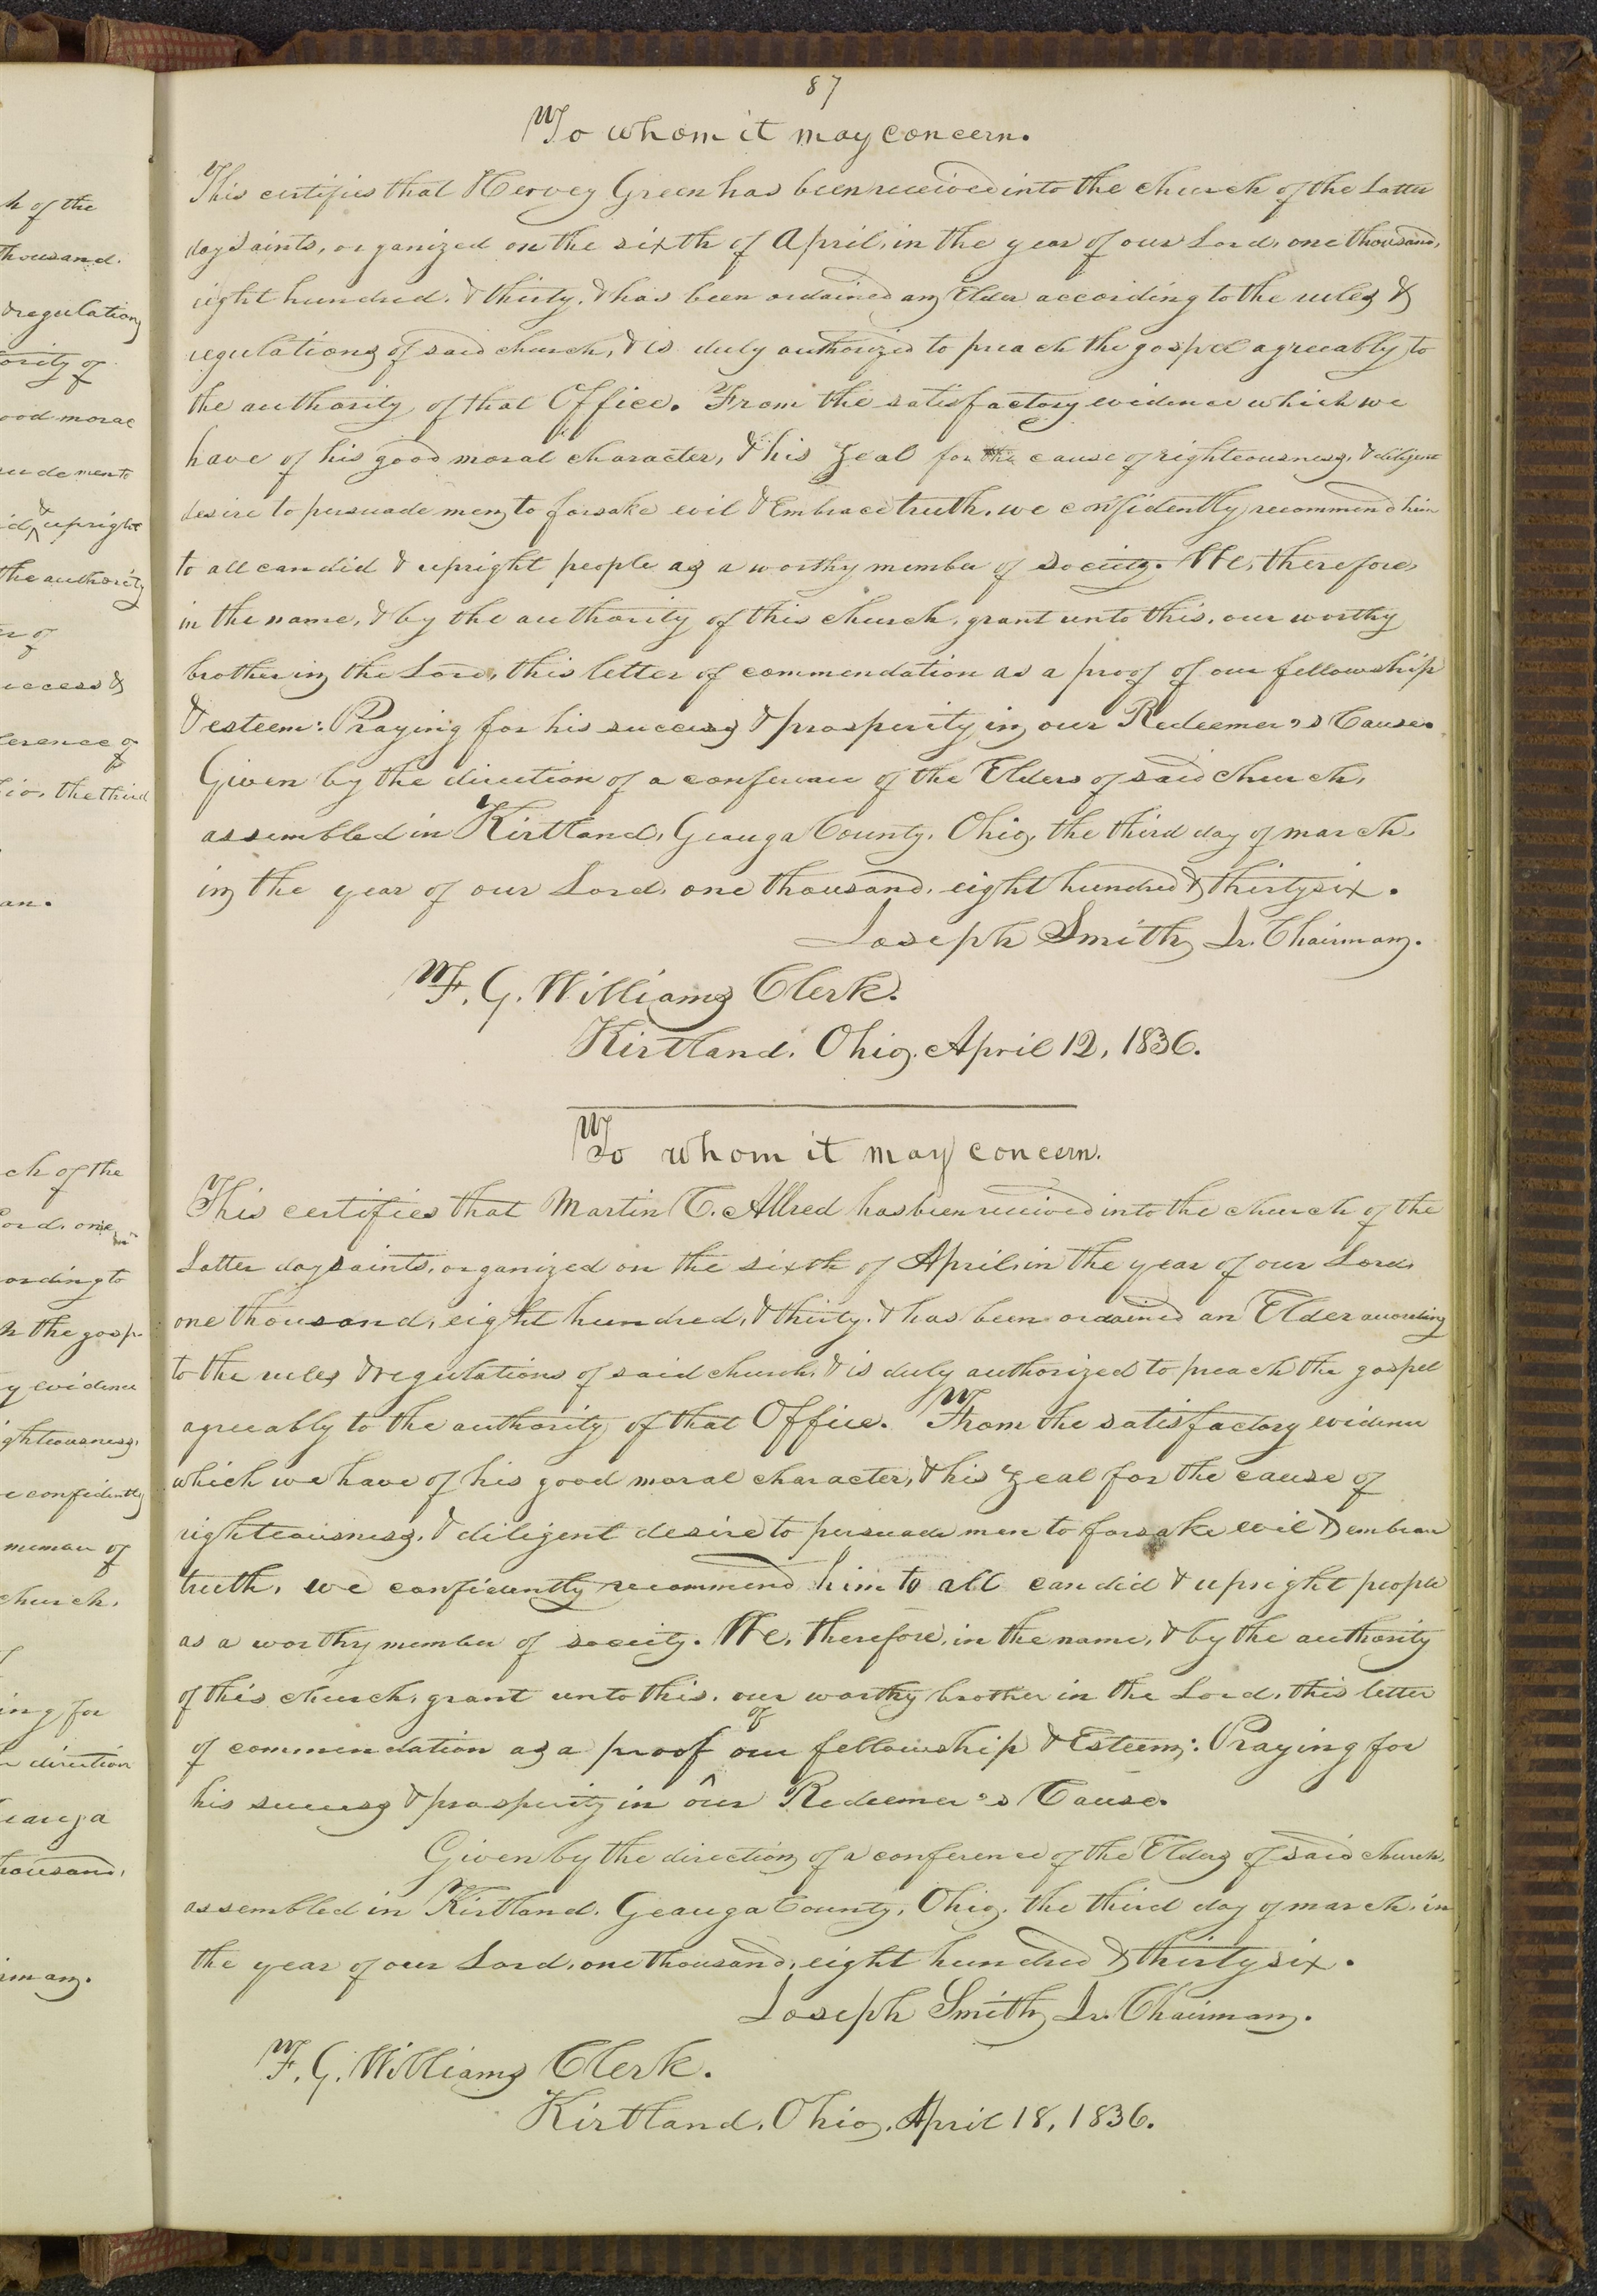 h of the
thousand.
& regulations
ority of
ood moral
ade men to
id & upright
the authority
er of
uccess &
ference of
io, the third
an.
ch of the
Lord, one
ording to
h the gosp
y evidence
ighteousness,
e confidently
member of
church,
ing for
direction
eauga
housand,
irman.
87
To whom it may concern.
This certifies that Hervey Green has been received into the church of the Latter
day Saints, organized on the sixth of April, in the year of our Lord, one thousand,
eight hundred, & thirty, & has been ordained an Elder according to the rules &
regulations of said church, & is duly authorized to preach the gospel agreeably to
the authority of that Office. From the satisfactory evidence which we
have of his good moral character, & his zeal for the cause of righteousness, & diligent
desire to persuade men to forsake evil & Embrace truth, we confidently recommend him
to all candid & upright people as a worthy member of society. We, therefore,
in the name, & by the authority of this church, grant unto this, our worthy
brother in the Lord, this letter of commendation as a proof of our fellowship
& esteem: Praying for his success & prosperity in our Redeemer's Cause.
Given by the direction of a conference of the Elders of said church,
assembled in Kirtland, Geauga County, Ohio, the third day of march,
in the year of our Lord, one thousand, eight hundred & thirty six.
Joseph Smith Jr. Chairman.
F. G. Williams Clerk.
Kirtland, Ohio, April 12, 1836.
To whom it may concern.
This certifies that Martin C. Allred has been received into the church of the
Latter day saints, organized on the sixth of April, in the year of our Lord,
one thousand, eight hundred, & thirty, & has been ordained an Elder according
to the rules & regulations of said church, & is duly authorized to preach the gospel
agreeably to the authority of that Office. From the satisfactory evidence
which we have of his good moral character, & his zeal for the cause of
righteousness, & diligent desire to persuade men to forsake evil & embrace
truth, we confidently recommend him to all candid & upright people
as a worthy member of society. We, therefore, in the name, & by the authority
of this church, grant unto this, our worthy brother in the Lord, this letter
of commendation as a proof of our fellowship & Esteem: Praying for
his success & prosperity in our Redeemer's Cause.
Given by the direction of a conference of the Elders of said church,
assembled in Kirtland, Geauga County, Ohio, the third day of march, in
the year of our Lord, one thousand, eight hundred & thirty six.
Joseph Smith Jr. Chairman.
F. G. Williams Clerk.
Kirtland, Ohio, April 18, 1836.